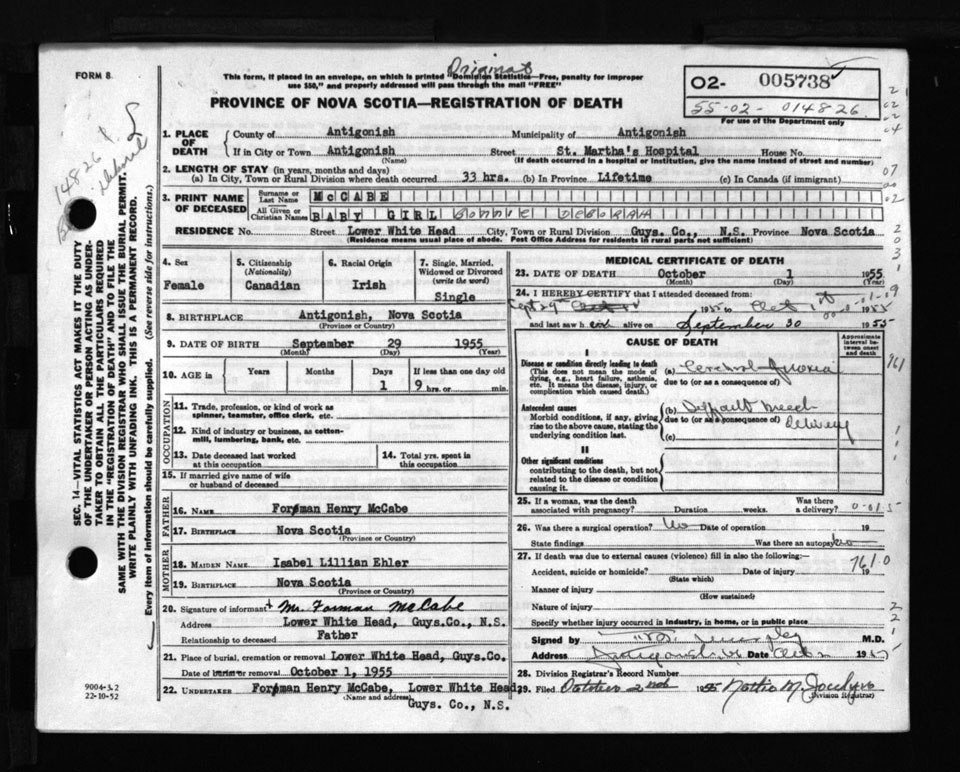 Original
FORM 8.
This form, if placed in an envelope, on which is printed "Dominion Statistics—Free, penalty for improper
use $50," and properly addressed will pass through the mail "FREE"
O2- 005738
55-02-014826
For use of the Department only
PROVINCE OF NOVA SCOTIA—REGISTRATION OF DEATH
14826
SEC. 14—VITAL STATISTICS ACT MAKES IT THE DUTY
OF THE UNDERTAKER OR PERSON ACTING AS UNDER-
TAKER TO OBTAIN ALL THE PARTICULARS REQUIRED
IN THE "REGISTRATION OF DEATH" AND TO FILE THE
SAME WITH THE DIVISION REGISTRAR WHO SHALL ISSUE THE BURIAL PERMIT.
WRITE PLAINLY WITH UNFADING INK. THIS IS A PERMANENT RECORD.
Every item of information should be carefully supplied. (See reverse side for instructions.)
1. PLACE OF DEATH
County of Antigonish Municipality of Antigonish
If in City or Town Antigonish Street St. Martha's Hospital House No.
(Name) (If death occurred in a hospital or institution, give the name instead of street and number)
2. LENGTH OF STAY (in years, months and days)
(a) In City, Town or Rural Division where death occurred 33 hrs. (b) In Province Lifetime (c) In Canada (if immigrant)
3. PRINT NAME OF DECEASED
Surname or Last Name McCABE
All Given or Christian Names BABY GIRL BONNIE DEBORAH
RESIDENCE No. Street Lower White Head City, Town or Rural Division Guys. Co., N.S. Province Nova Scotia
(Residence means usual place of abode. Post Office Address for residents in rural parts not sufficient)
4. Sex
Female
5. Citizenship
(Nationality)
Canadian
6. Racial Origin
Irish
7. Single, Married,
Widowed or Divorced
(write the word)
Single
8. BIRTHPLACE Antigonish, Nova Scotia
(Province or Country)
9. DATE OF BIRTH September 29 1955
(Month) (Day) (Year)
10. AGE in Years Months Days 1
If less than one day
9 hrs. or min.
OCCUPATION
11. Trade, profession, or kind of work as
spinner, teamster, office clerk, etc.
12. Kind of industry or business, as cotton-
mill, lumbering, bank, etc.
13. Date deceased last worked
at this occupation
14. Total yrs. spent in
this occupation
15. If married give name of wife
or husband of deceased
FATHER
16. Name Forsman Henry McCabe
17. Birthplace Nova Scotia
(Province or Country)
MOTHER
18. MAIDEN NAME Isabel Lillian Ehler
19. BIRTHPLACE Nova Scotia
(Province or Country)
20. Signature of informant Mr. Forman McCabe
Address Lower White Head, Guys.Co., N.S.
Relationship to deceased Father
21. Place of burial, cremation or removal Lower White Head, Guys.Co.
Date of burial or removal October 1, 1955
22. UNDERTAKER Forsman Henry McCabe, Lower White Head
(Name and address) Guys. Co., N.S.
9004-3.2
22-10-52
MEDICAL CERTIFICATE OF DEATH
23. DATE OF DEATH October 1 1955
(Month) (Day) (Year)
24. I HEREBY CERTIFY that I attended deceased from
Sept 29th 1955 to Oct 1st 1955
and last saw h er alive on September 30 1955
CAUSE OF DEATH
Approximate
interval between onset
and death
I
Disease or condition directly leading to death
(This does not mean the mode of
dying, e.g., heart failure, asthenia,
etc. It means the disease, injury, or
complication which caused death.)
(a) Cerebral Anoxia
due to (or as a consequence of)
Antecedent causes
Morbid conditions, if any, giving
rise to the above cause, stating the
underlying condition last.
(b) Difficult breech
due to (or as a consequence of) Delivery
(c)
II
Other significant conditions
contributing to the death, but not
related to the disease or condition
causing it.
25. If a woman, was the death
associated with pregnancy? Duration weeks.
Was there
a delivery?
26. Was there a surgical operation? No Date of operation 19
State findings Was there an autopsy no
27. If death was due to external causes (violence) fill in also the following:—
Accident, suicide or homicide? Date of injury 19
(State which)
761.0
Manner of injury
(How sustained)
Nature of injury
Specify whether injury occurred in industry, in home, or in public place
Signed by M.D.
Address Antigonish Date Oct 1955
28. Division Registrar's Record Number
29. Filed October 2nd 1955 Nettie M. Jocelyn
(Division Registrar)